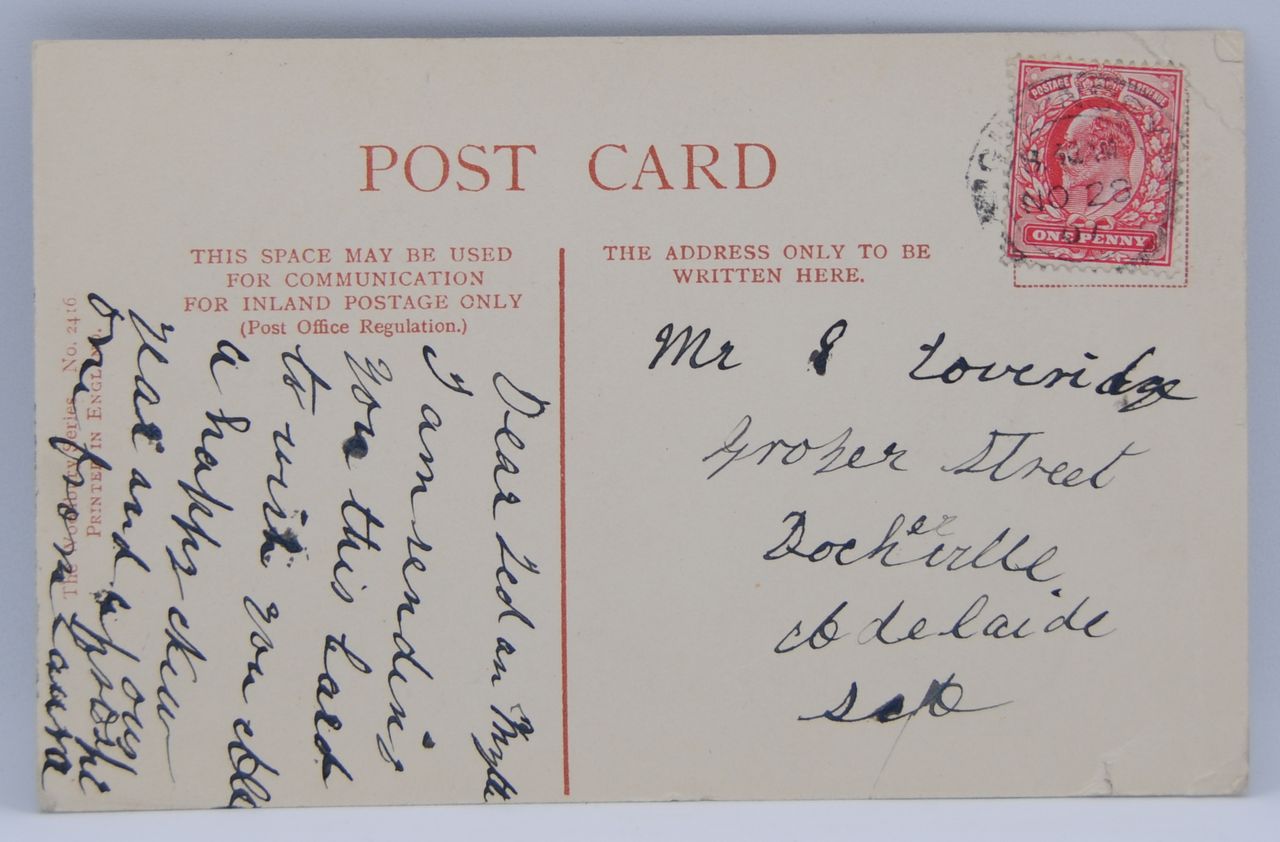 POST CARD
THIS SPACE MAY BE USED
FOR COMMUNICATION
FOR INLAND POSTAGE ONLY
(Post Office Regulation.)
THE ADDRESS ONLY TO BE
WRITTEN HERE.
POSTAGE & REVENUE
NO 28
07
ONE PENNY
Mr Loveridge
Street
Adelaide
Dear Ted an
I am sending
you this Card
to wish you All
a happy New
year and a prospe
ous
one from Laura
The Woodbury Series. No. 2416
PRINTED IN ENGLAND.